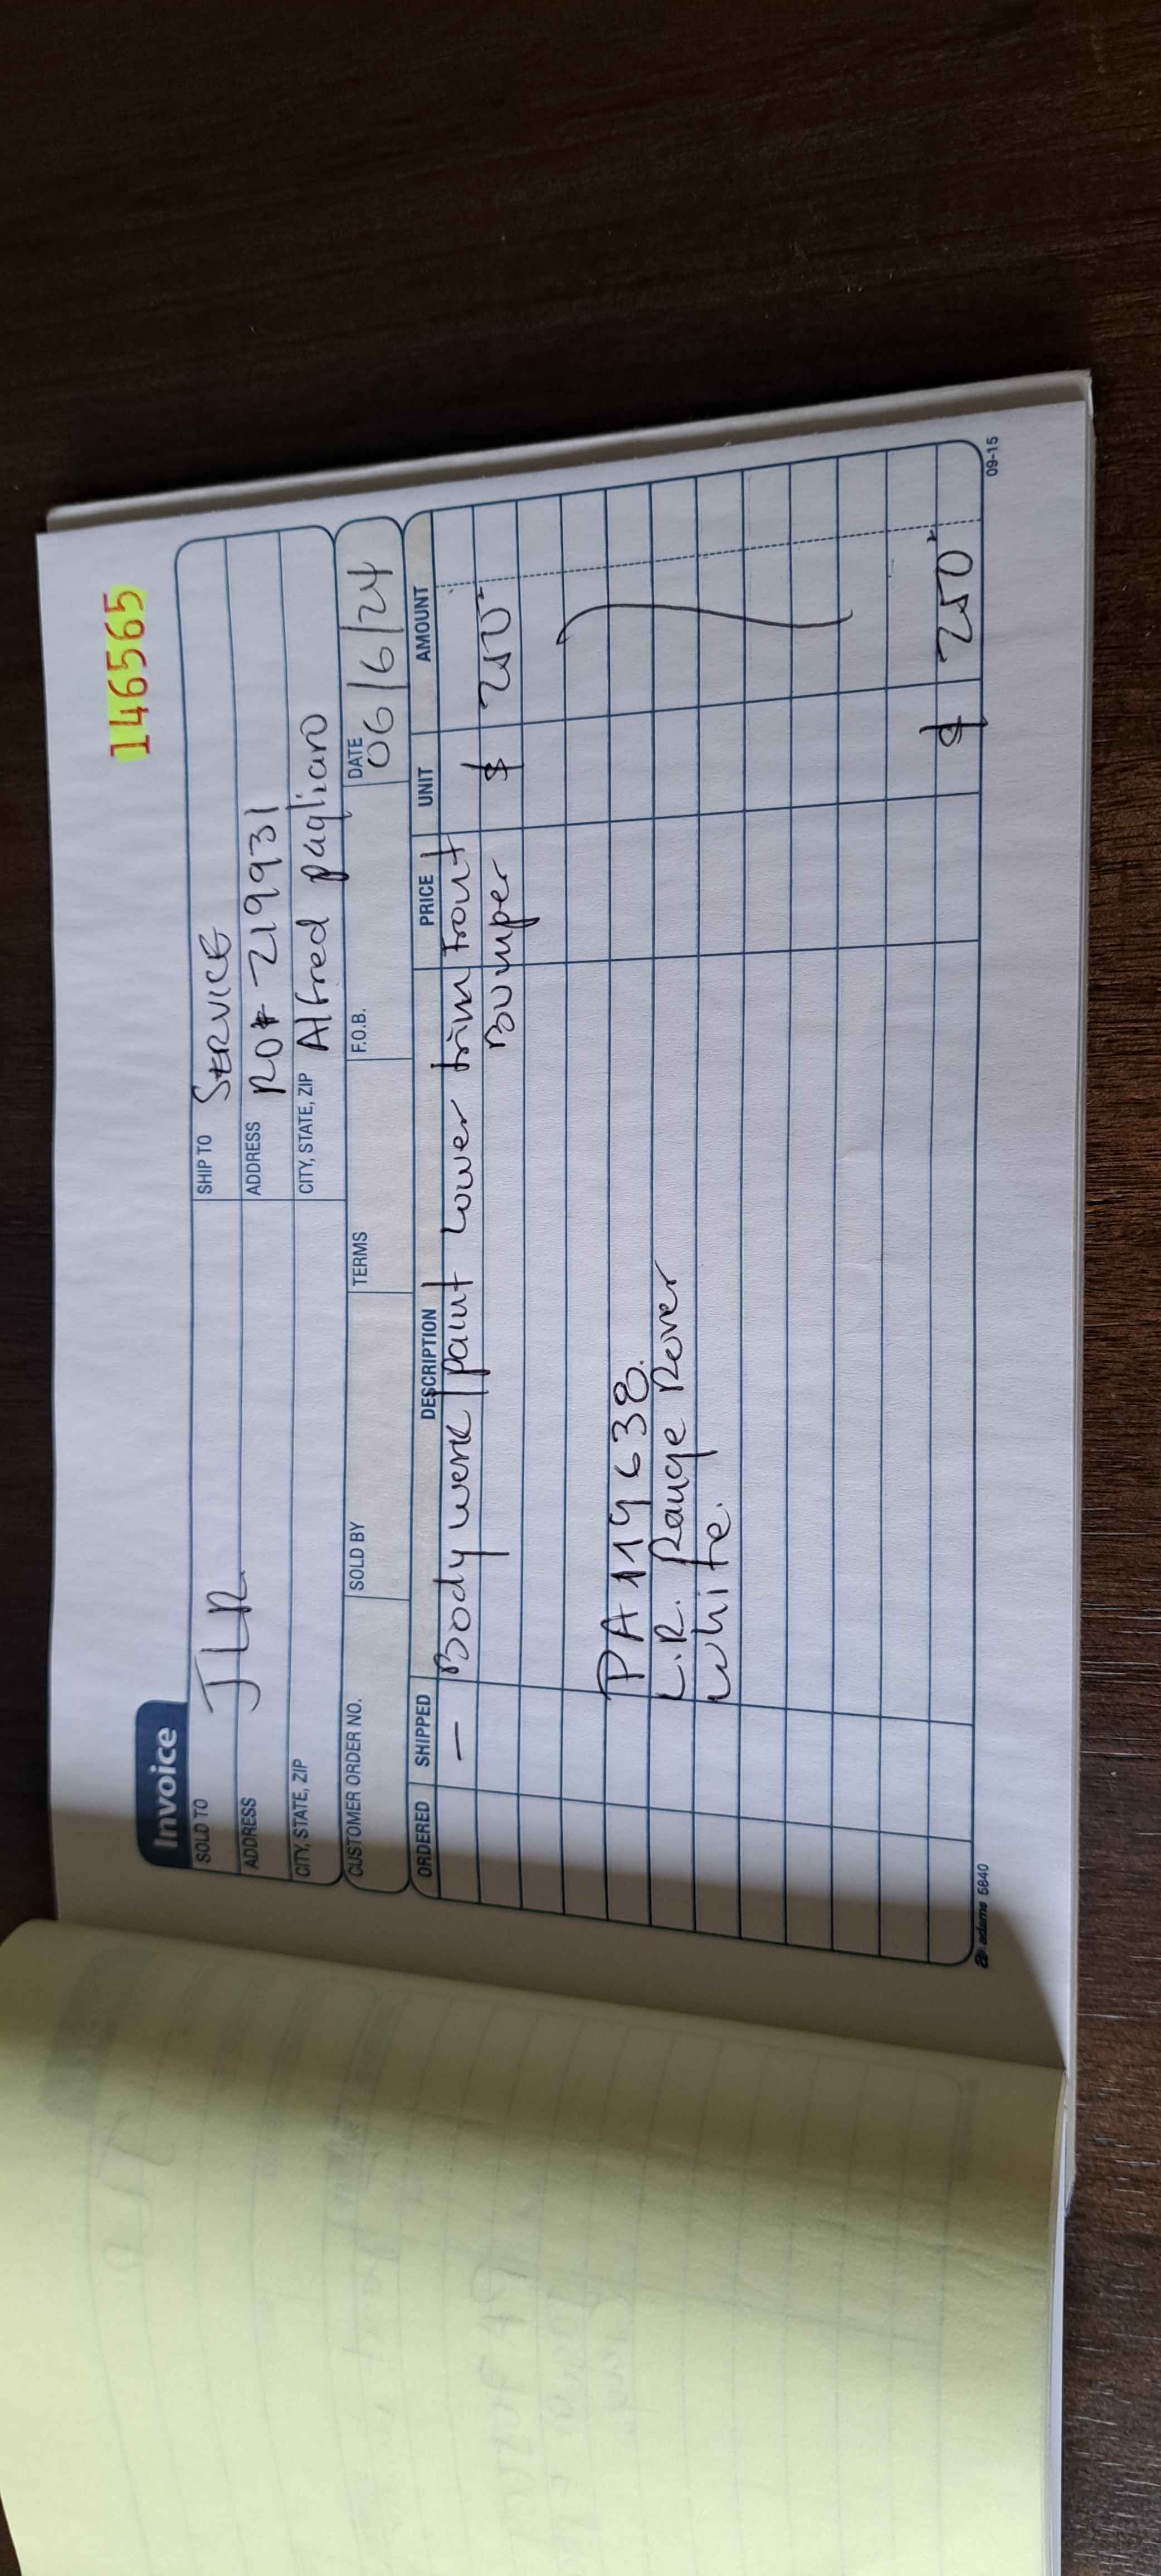 146565
Invoice
SOLD TO JLR
SHIP TO SERVICE
ADDRESS
ADDRESS RO# 219931
CITY, STATE, ZIP
CITY, STATE, ZIP Alfred pagliaro
CUSTOMER ORDER NO. SOLD BY TERMS F.O.B. DATE 06/6/24
ORDERED SHIPPED DESCRIPTION PRICE UNIT AMOUNT
— Body work/paint Lower trim front
Bumper $ 250
PA119638.
L.R. Range Rover
white.
$ 250
adams 5840 09-15